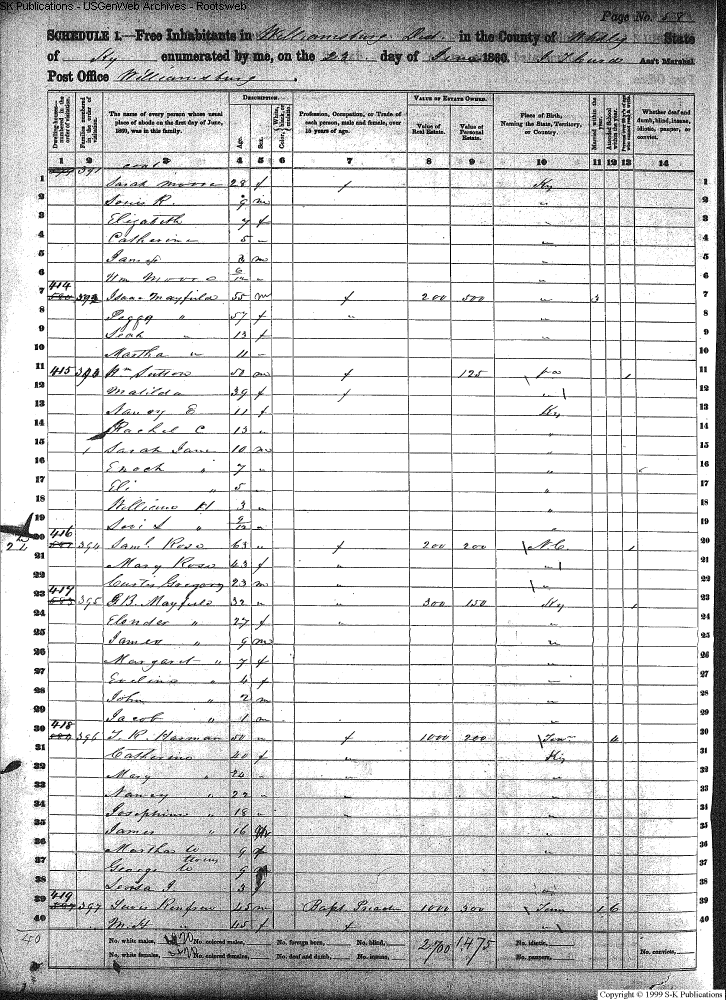 SK Publications - USGenWeb Archives - Rootsweb
Page No. 58
SCHEDULE 1.—Free Inhabitants in Williamsburg Dist. in the County of Whitley State
of Ky enumerated by me, on the 22 day of June 1860. Ass't Marshal
Post Office Williamsburg.
Dwelling-houses—numbered in the order of visitation.
Families numbered in the order of visitation.
The name of every person whose usual place of abode on the first day of June, 1860, was in this family.
DESCRIPTION.
Age.
Sex.
Color,
Profession, Occupation, or Trade of each person, male and female, over 15 years of age.
VALUE OF ESTATE OWNED.
Value of Real Estate.
Value of Personal Estate.
Place of Birth, Naming the State, Territory, or Country.
Married within the year.
Attended School within the year.
Whether deaf and dumb, blind, insane, idiotic, pauper, or convict.
1 2 3 4 5 6 7 8 9 10 11 12 13 14
391
1 Sarah Moore 28 f Ky 1
2 R. 9 m " 2
3 Elizabeth 7 f 3
4 Catherine 5 " " 4
5 James m " 5
6 Wm Moore 6/12 " " 6
7 414 392 Isaac Mayfield 55 m 200 500 " 3 7
8 Peggy " 57 f " " 8
9 Leah " 13 f " 9
10 Martha " 11 " 10
11 415 393 Wm Sutton 50 m 125 11
12 Matilda 39 f " 12
13 Nancy E 11 f Ky 13
14 Rachel C 13 " " 14
15 Sarah Jane 10 m " 15
16 Enoch " 7 " " 16
17 Eli " 5 " " 17
18 William H 3 " " 18
19 Levi S " 9/12 " " 19
20 416 394 Saml. Rose 63 " 200 200 N.C 20
21 Mary Rose 43 f " " 21
22 Curtis Gregory 23 m " " 22
23 417 395 G.B. Mayfield 32 " " 300 150 Ky 23
24 Elender " 27 f " " 24
25 James " 9 m " 25
26 Margaret " 7 f " 26
27 Evelina " 4 f " 27
28 John " 2 m " 28
29 Jacob " 1 m " 29
30 418 396 T. R. Harman 50 " 1000 200 Ten 30
31 Catherine 40 f " Ky 31
32 Mary " 24 " " " 32
33 Nancy " 22 " " " 33
34 Josephine " 18 " " " 34
35 James " 16 " 35
36 Martha W 9 f " 36
37 George W twins 9 m " 37
38 J. 3 f 38
39 419 397 Lewis Renfro 45 m Bapt. Preach 1000 300 Tenn 39
40 M.H. " 45 f " 40
40
No. white males, No. colored males, No. foreign born, No. blind, 2700 1475 No. idiotic,
No. white females, No. colored females, No. deaf and dumb, No. insane, No. paupers, No. convicts,
Copyright © 1999 S-K Publications